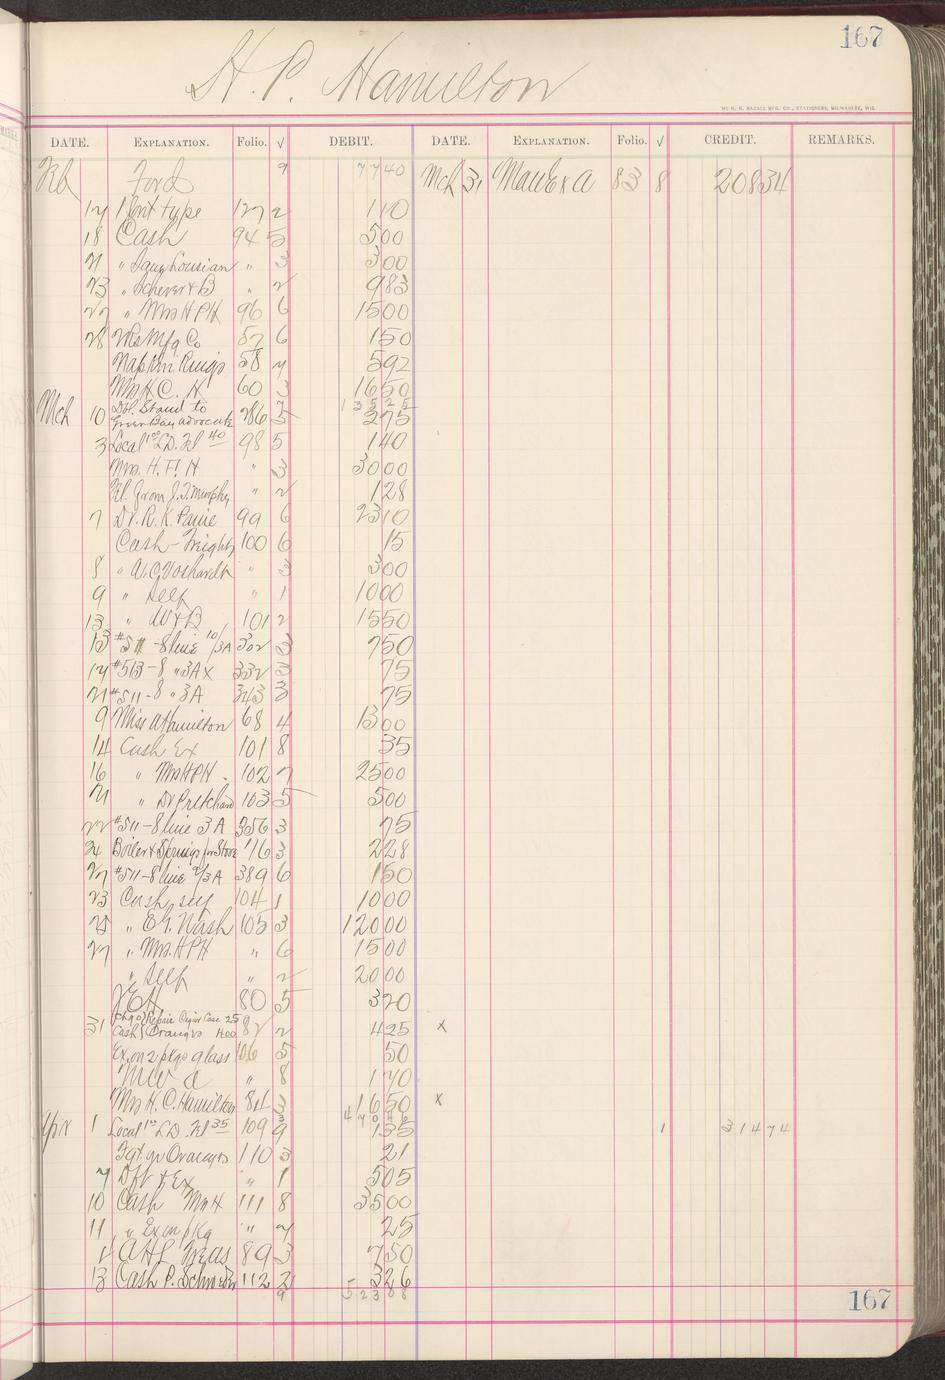 167
H. P. Hamilton
DATE. EXPLANATION. Folio. √ DEBIT. DATE. EXPLANATION. Folio. √ CREDIT. REMARKS.
Ford 9 7740 Mch 31 83 8 20834
17 1 Font type 127 2 110
18 Cash 94 5 500
21 " " 3 300
23 " " 2 983
27 " Mrs HPH 96 6 1500
28 Mfg Co 57 6 150
Napkin Rings 58 7 592
Mrs H C. H 60 3 1650
13525
Mch 10 Dbl. Stand to Green Bay advocate 286 5 275
3 Local 1.00 LD. Tel 40 98 5 140
Mrs. H. P. H " 3 3000
Tel. from J. T. Murphy " 2 128
7 Dr. R. K. Paine 99 6 2310
Cash - Freight 100 6 15
8 " " 3 300
9 " Self " 1 1000
13 " W & B 101 2 1550
13 - 8 line 10/3A 302 3 750
14 #513 - 8 " 3A x 332 3 75
21 #511 - 8 " 3A 343 3 75
9 Miss A Hamilton 68 4 1300
14 Cash Ex 101 8 35
16 " Mrs HPH 102 7 2500
21 " Dr Pritchard 103 5 500
22 #511 - 8 line 3A 356 3 75
24 Boiler & Springs for Stove 116 3 228
27 #511 - 8 line 2/3A 389 6 150
23 Cash self 104 1 1000
25 " E. G. Nash 105 3 12000
27 " Mrs. HPH " 6 1500
" Self " 2 2000
80 5 320
31 Repair Cigar Case 25
Cash Oranges 4.00 82 2 425 x
Ex. on 2 pkgs glass 106 5 50
" 8 170
Mrs H. C. Hamilton 84 3 1650 x
Apr 1 Local 1.00 LD. Tel 35 109 9 135 1 31474
Fgt. on Oranges 110 3 21
7 Dft & Ex " 1 505
10 Cash Mrs H 111 8 3500
11 " Ex on pkg " 7 25
1 AHL Treas 89 3 750
13 Cash P. Schroeder 112 2 326
9 52308
167